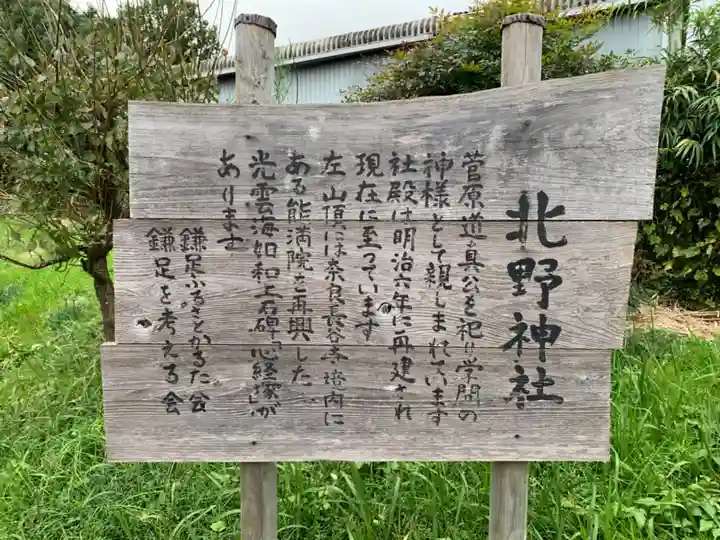 北野神社
菅原道真公を祀り学問の
神様として親しまれています
社殿は明治六年に再建され
現在に至っています
左山頂には奈良長谷寺境内に
ある能満院を再興した
光雲海如和上石碑「心経塚」が
あります
鎌足ふるさとかるた会
鎌足を考える会